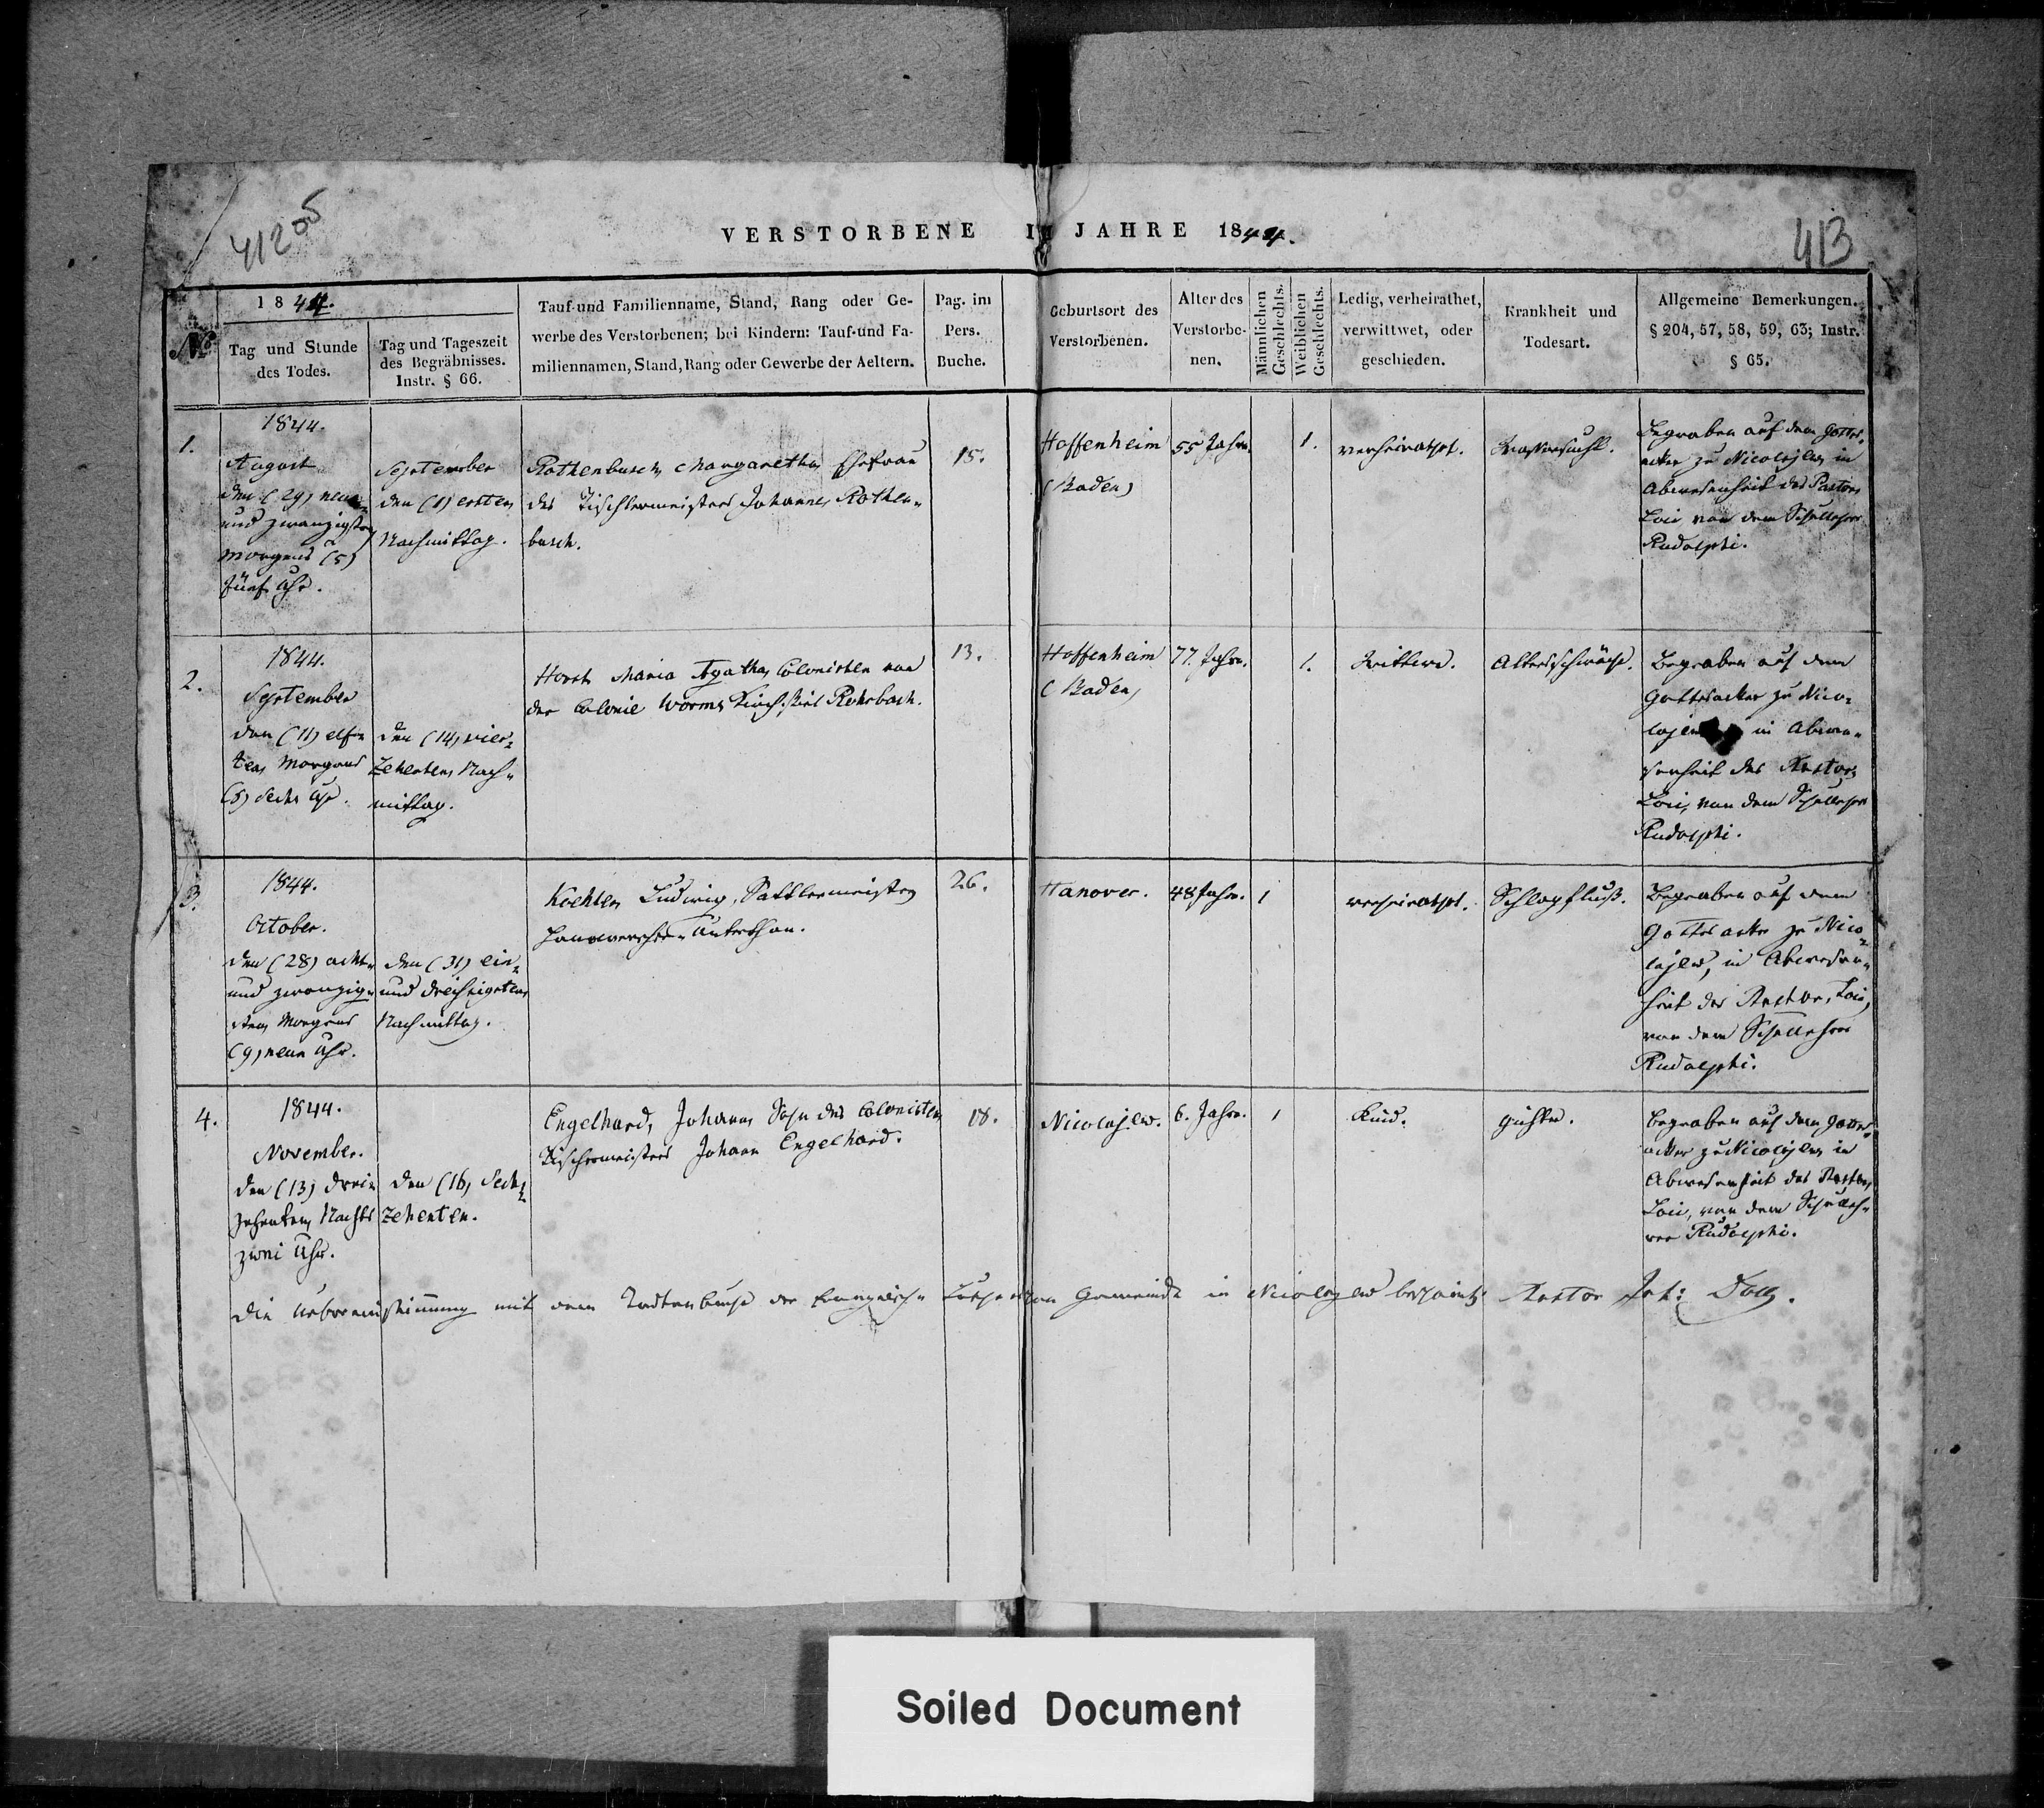 41205
VERSTORBENE IM JAHRE 1844.
413
№
1844.
Tag und Stunde
des Todes.
Tag und Tageszeit
des Begräbnisses.
Instr. § 66.
Tauf-und Familienname, Stand, Rang oder Ge-
werbe des Verstorbenen; bei Kindern: Tauf-und Fa-
miliennamen, Stand, Rang oder Gewerbe der Aeltern.
Pag. im
Pers.
Buche.
Geburtsort des
Verstorbenen.
Alter des
Verstorbe-
nen.
Männlichen
Geschlechts.
Weiblichen
Geschlechts.
Ledig, verheirathet,
verwittwet, oder
geschieden.
Krankheit und
Todesart.
Allgemeine Bemerkungen.
§ 204, 57, 58, 59, 63; Instr.
§ 65.
1.
1844.
August
den (29) neun-
und zwanzigsten
Morgens (5)
fünf Uhr.
September
den (1) ersten
Nachmittag.
Rothenbusch, Margaretha, Ehefrau
des Tischlermeisters Johannes Rothen-
busch.
15.
Hoffenheim
(Baden)
55 Jahre.
1.
verheirathet.
Wassersucht.
Begraben auf dem Gottes-
acker zu Nicolajew in
Abwesenheit des Pastors
von dem Schullehrer
Rudolphi.
2.
1844.
September
den (11) elf-
ten Morgens
(6) sechs Uhr.
den (14) vier-
zehenten Nach-
mittag.
Horst Maria Agatha, Colonisten von
der Colonie Worms Kirchspiel Rohrbach.
13.
Hoffenheim
(Baden)
77. Jahre.
1.
Wittwe.
Altersschwäche.
Begraben auf dem
Gottesacker zu Nico-
lajew in Abwe-
senheit des Pastors
von dem Schullehrer
Rudolphi.
3.
1844.
October.
den (28) acht-
und zwanzig-
sten Morgens
(9) neun Uhr.
den (31) ein-
und dreisigsten
Nachmittag.
Ludwig, Sattlermeister,
Unterthan.
26.
Hanover.
48 Jahre.
1
verheirathet.
Schlagfluß.
Begraben auf dem
Gottesacker zu Nico-
lajew, in Abwesen-
heit des Pastors
von dem Schullehrer
Rudolphi.
4.
1844.
November.
den (13) drei-
zehenten Nachts
zwei Uhr.
den (16) sech-
zehenten.
Engelhard, Johann, Sohn des Colonisten
Tischermeisters Johann Engelhard.
18.
Nicolajew.
6. Jahre.
1
Kind.
Gichter.
Begraben auf dem Gottes-
acker zu Nicolajew in
Abwesenheit des Pastors
von dem Schulleh-
rer Rudolphi.
Die Uebereinstimmung mit dem Todtenbuche der Evangelisch Lutherischen Gemeinde in Nicolajew bescheinigt Pastor Joh: Doll.
Soiled Document